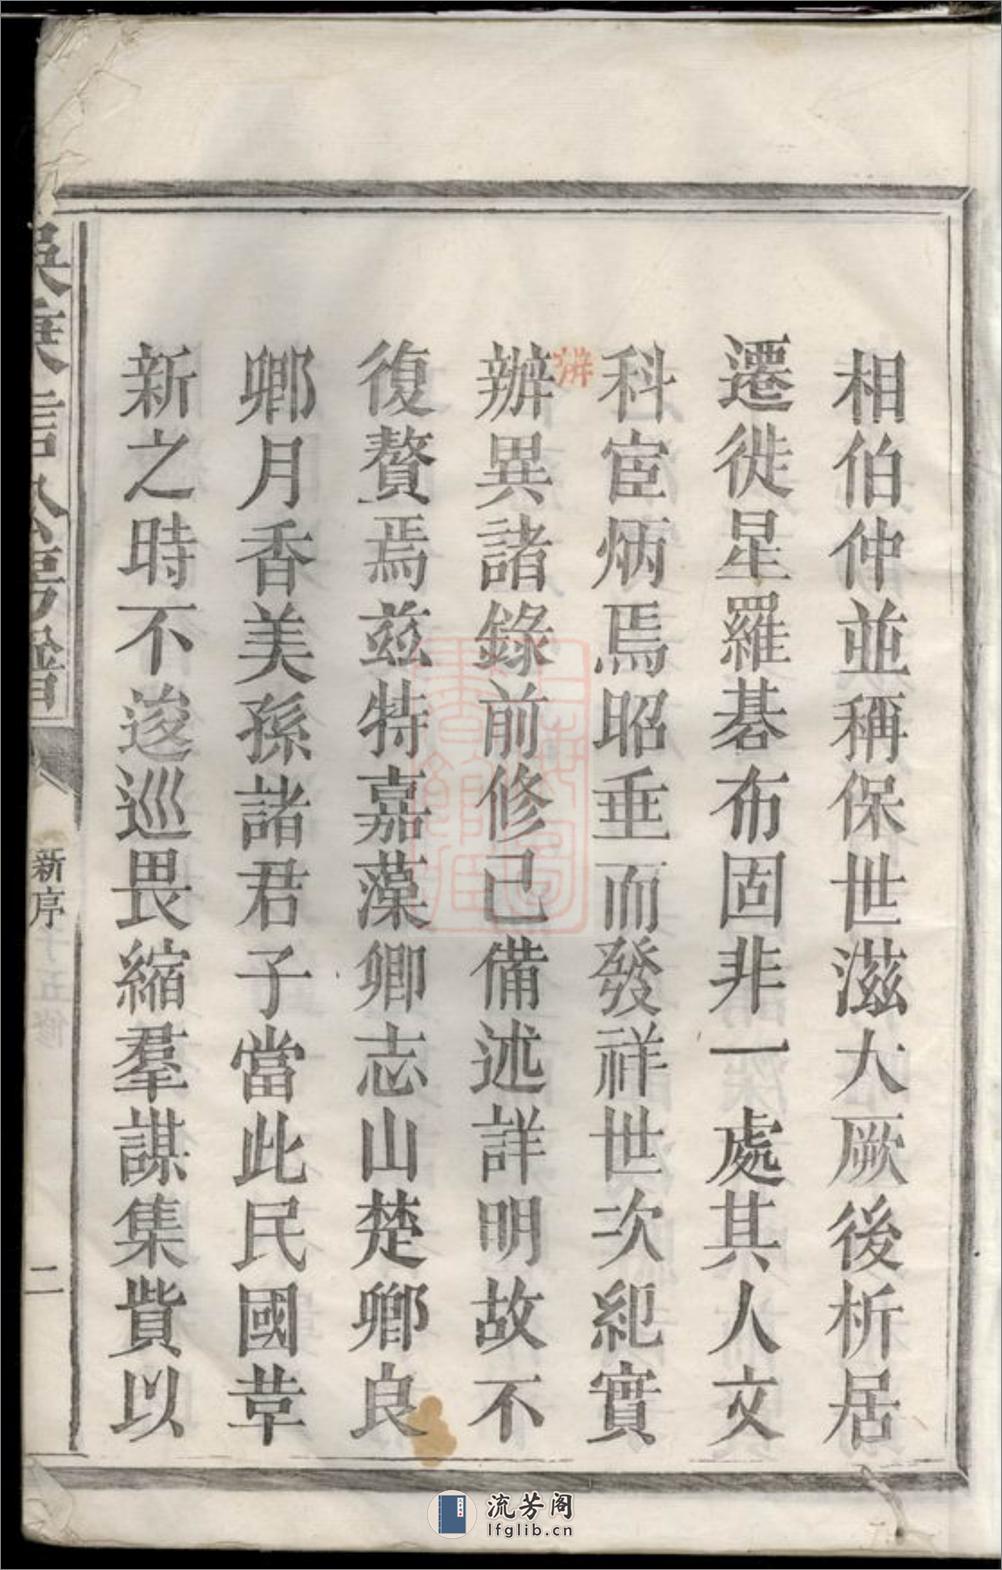 相伯仲並稱保世滋大厥後析居
遷徙星羅碁布固非一處其人文
科宦炳焉昭垂而發祥世次紀實
辨
辦異諸錄前修已備述詳明故不
復贅焉茲特嘉藻卿志山楚鄉良
鄉月香美孫諸君子當此民國草
新之時不逡巡畏縮羣謀集貲以
新序
二
流芳阁
lfglib.cn